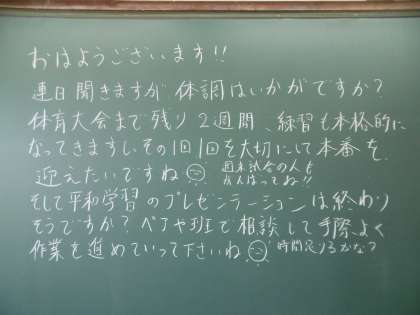 おはようございます!!
連日聞きますが 体調はいかがですか?
体育大会まで残り 2週間、練習も本格的に
なってきますし、その1回1回を大切にして本番を
迎えたいですね
週末試合の人も
がんばってね!!
そして平和学習のプレゼンテーションは終わり
そうですか? ペアや班で相談して手際よく
作業を進めていって下さいね
時間足りるかな?